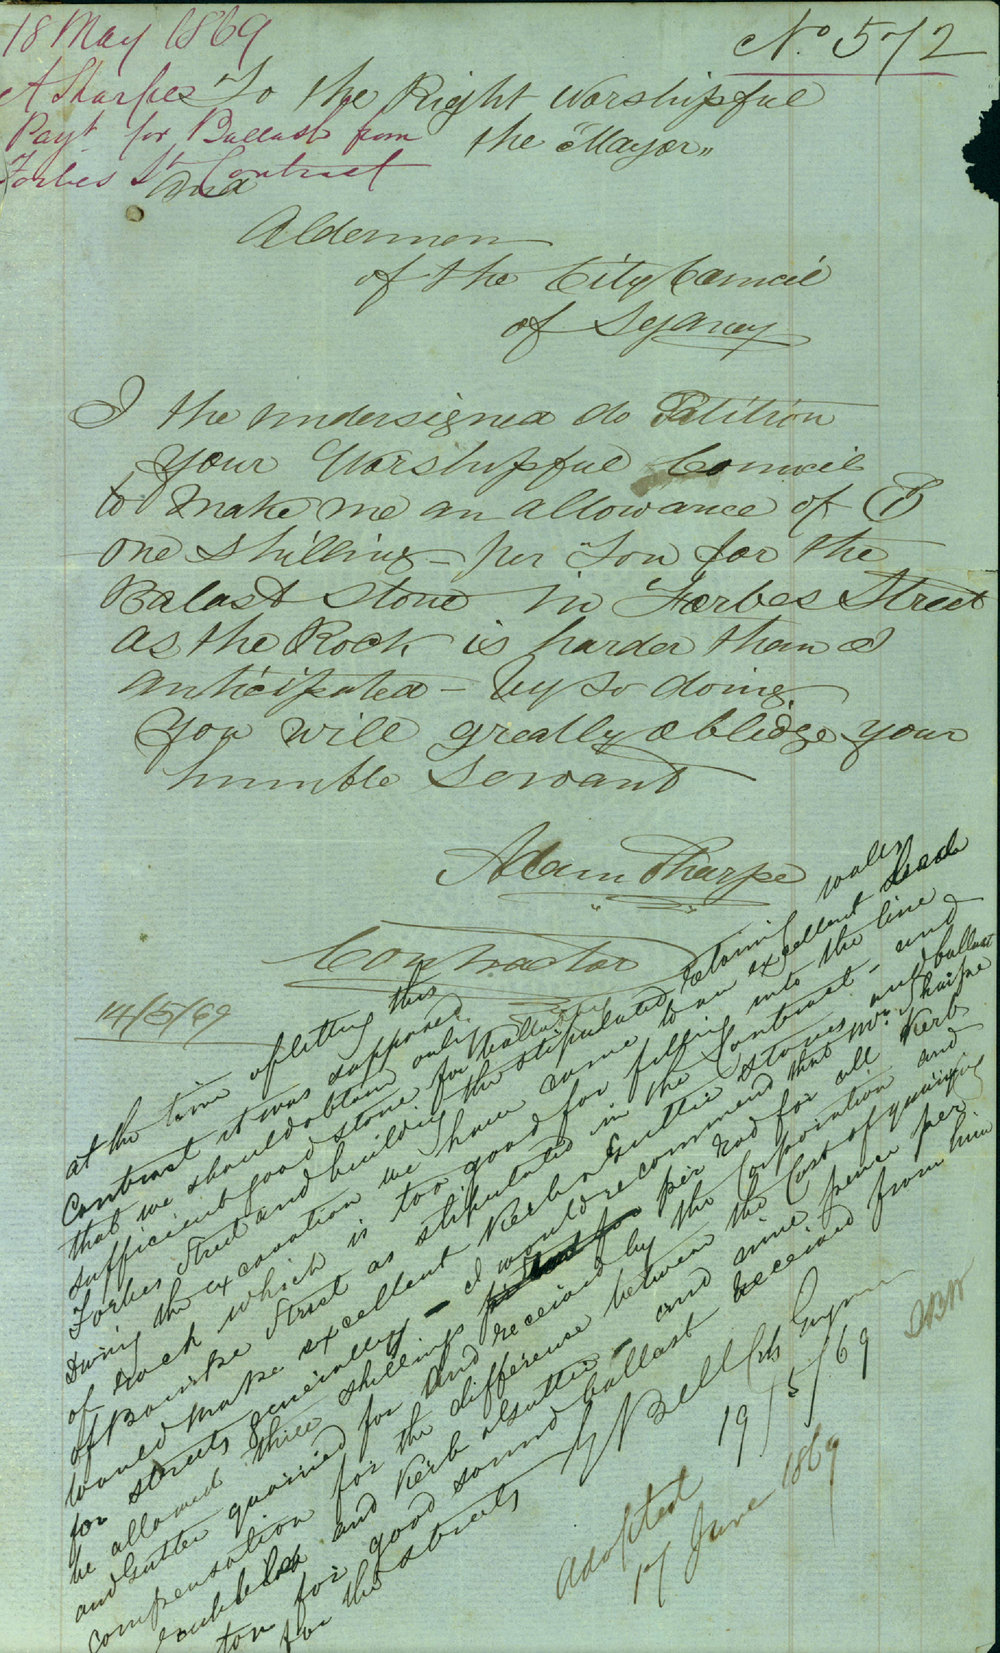 18 May 1869
A Sharpe
Payt for Ballast from
Forbes St Contract
No 572
To the Right Worshipful
the "Mayor"
and
Aldermen
of the City Council
of Sydney
I the undersigned do Petition
your Worshipful Council
to make me an allowance of
one shilling per Ton for the
Balast Stone in Forbes Street
as the Rock is harder than I
anticipated - by so doing
you will greatly oblidge your
humble Servant
Adam Sharpe
Contractor
14/5/69
at the time of letting this
Contract it was supposed
that we should obtain only
sufficient good stone for ballasting
Forbes Street and building the stipulated retaining walls
During the excavation we have come to an excellent
of rock which is too good for filling into the line
of Bourke Street as stipulated in the Contract - and
would make excellent Kerb & Gutter stones and ballast
for streets generally - I would recommend that Mr Sharpe
be allowed three shillings per rod for all Kerb
and Gutter quarried for and received by the Corporation and
compensation for the difference between the Cost of quarrying
rubble and Kerb & Gutter - and nine pence per
ton for good sound ballast received from him
for the streets
Bell City Engineer
19/5/69
Adopted
17 June 1869